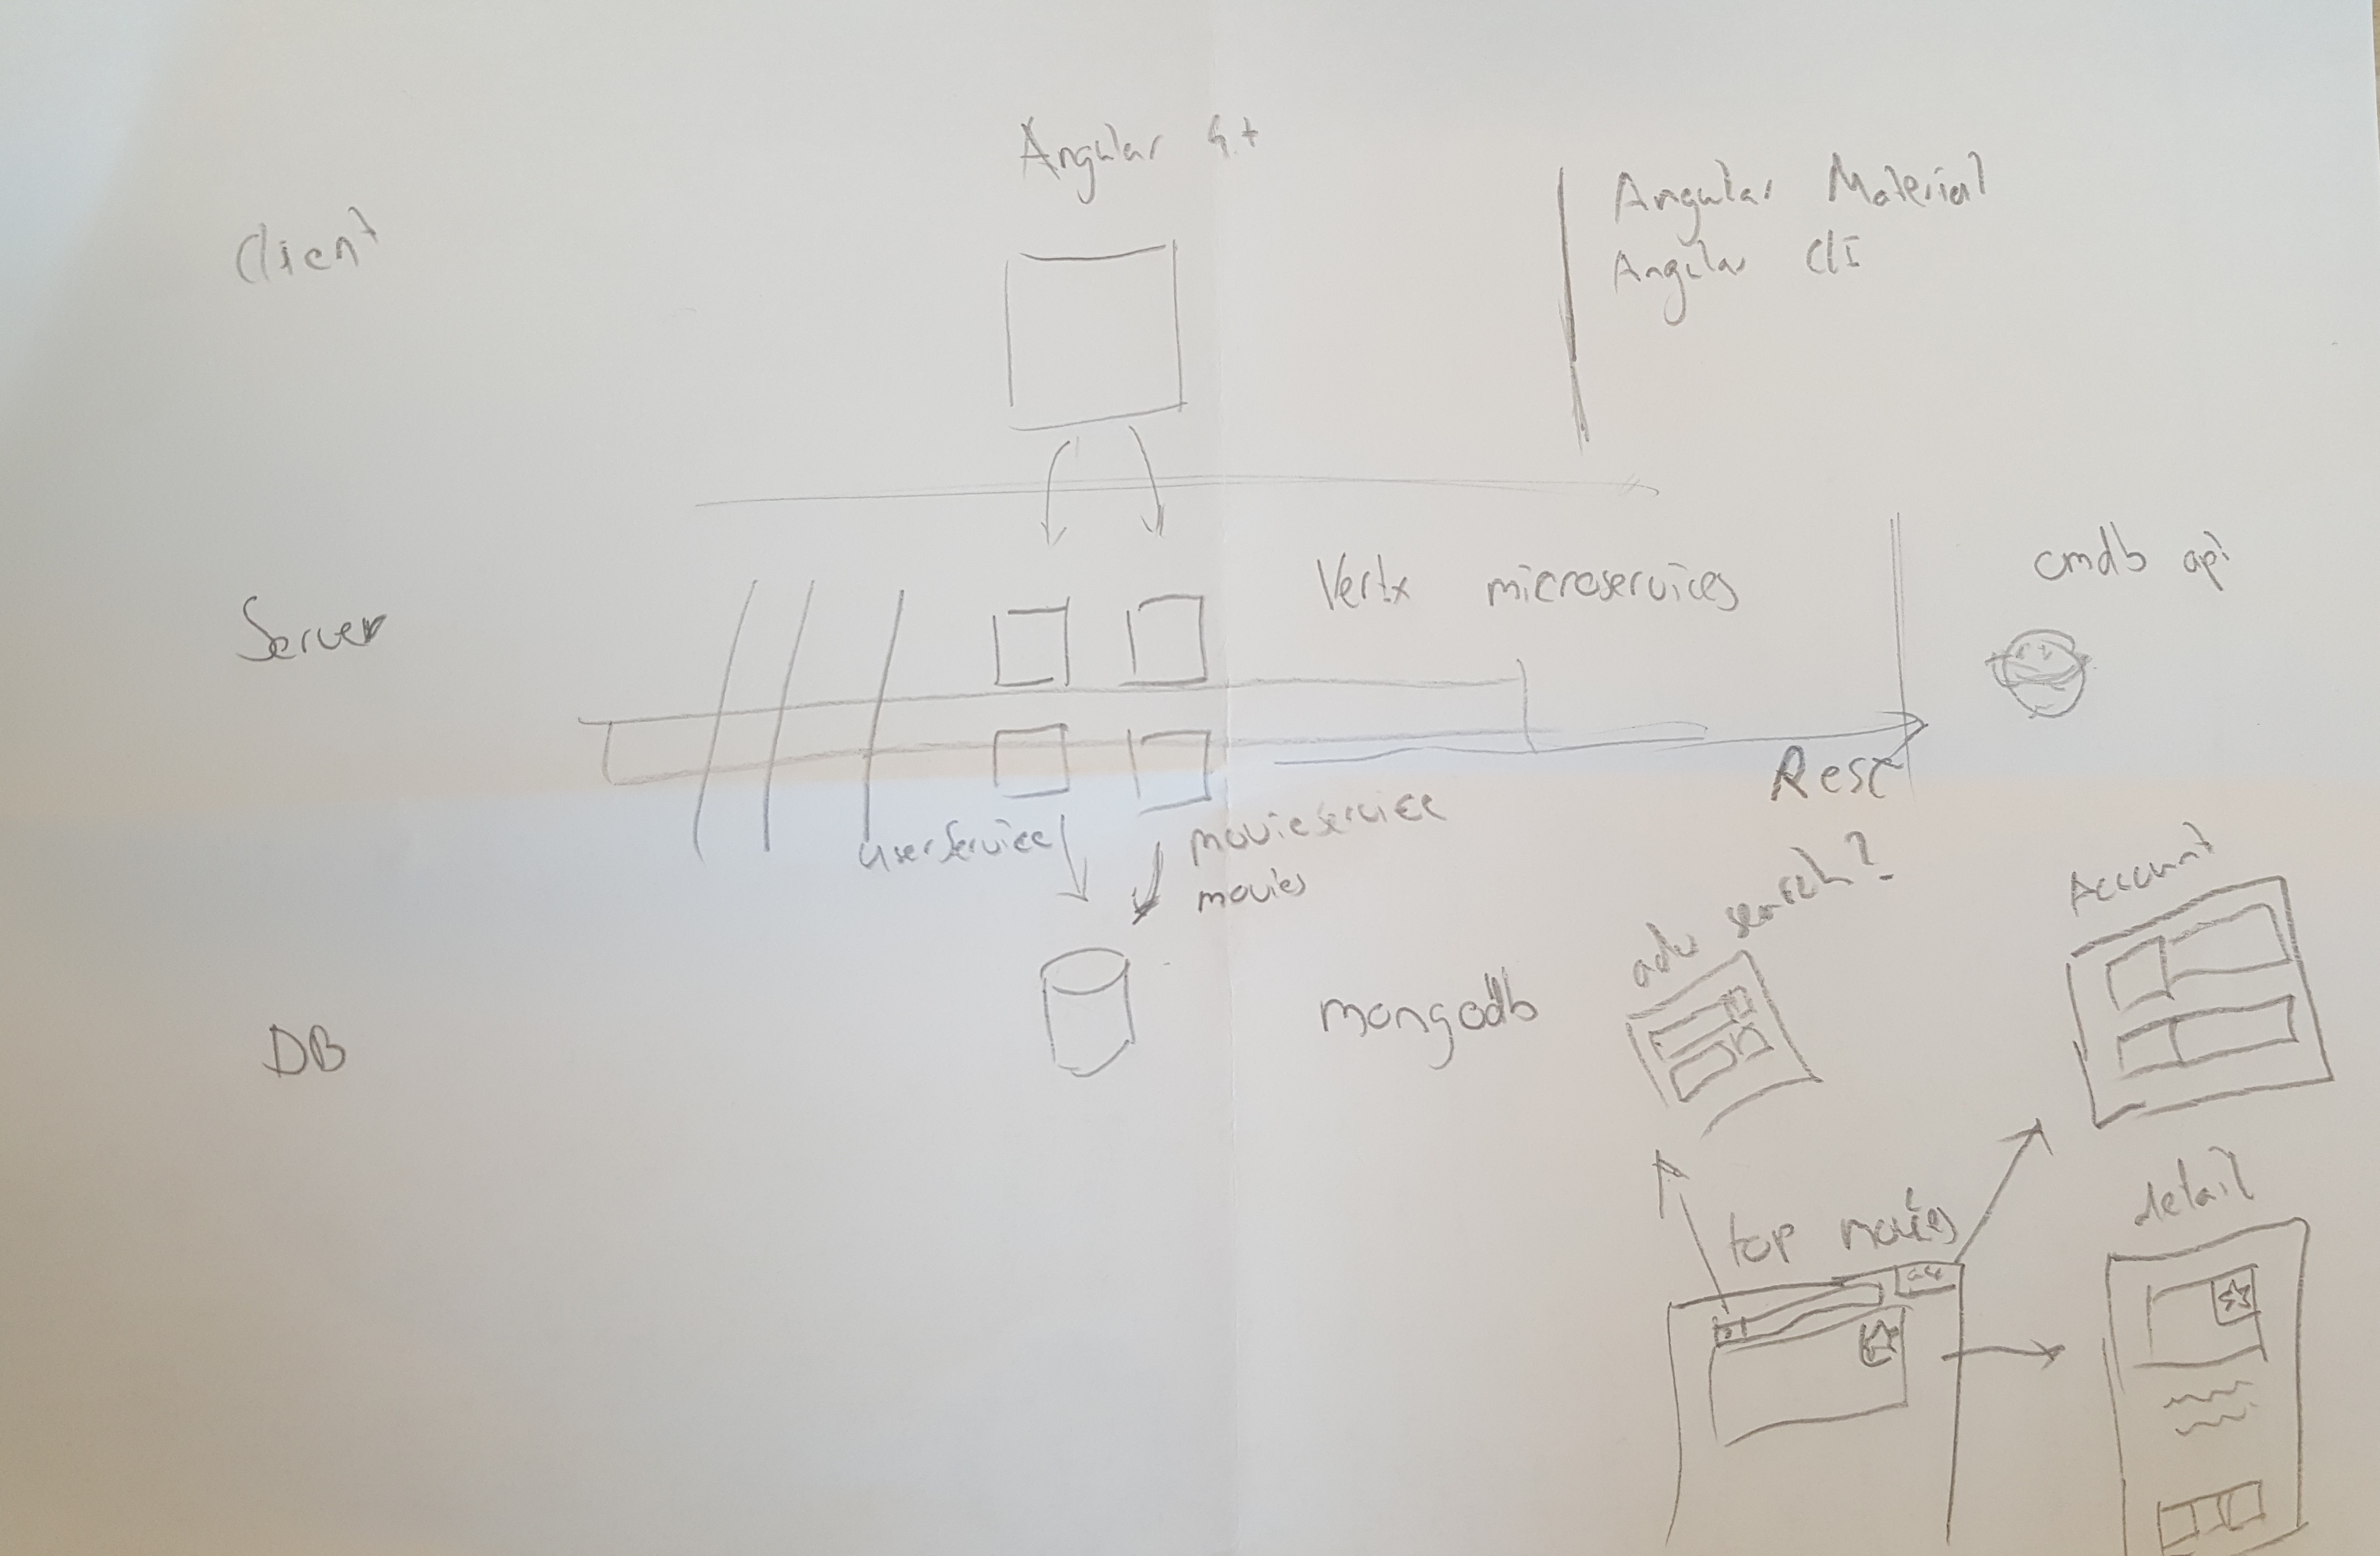 Angular 4.+
Client
Angular Material
Angular ClI
Server
Vertx microservices
omdb api
Rest
userService
movieservice
movies
DB
mongodb
adv search?
Account
top movies
detail